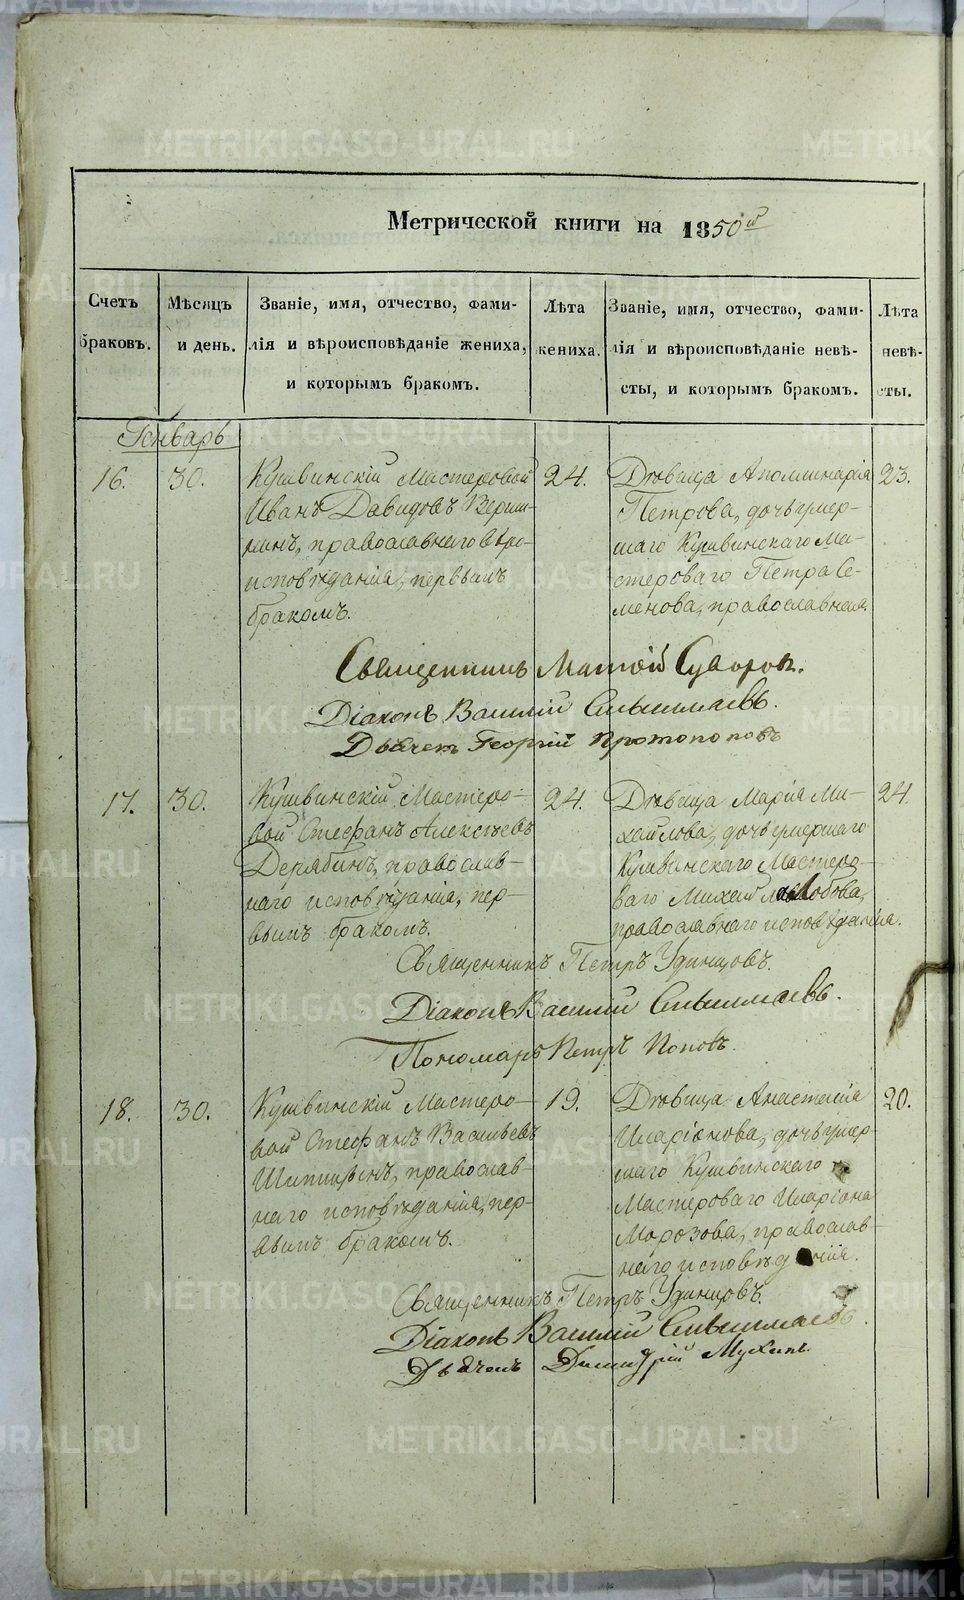 Метрической книги на 1850й
Счетъ браковъ.
Мѣсяцъ и день.
Званіе, имя, отчество, фами-
лія и вѣроисповѣданіе жениха,
и которымъ бракомъ.
Лѣта жениха.
Званіе, имя, отчество, фами-
лія и вѣроисповѣданіе невѣ-
сты, и которымъ бракомъ.
Лѣта невѣ-
сты.
Генварь
16.
30.
Кушвинскій Мастеровой
Иванъ Давидовъ Верши-
нинъ, православнаго вѣро-
исповѣданія, первымъ
бракомъ.
24.
Дѣвица Аполлинарія
Петрова, дочь умер-
шаго Кушвинскаго Ма-
стероваго Петра Се-
менова, православная.
23.
Священникъ Матѳій Суворовъ.
Діаконъ Василій
Дьячекъ Георгій Протопоповъ
17.
30.
Кушвинскій Мастеро-
вой Стефанъ Алексѣевъ
Дерябинъ, православ-
наго исповѣданія, пер-
вымъ бракомъ.
24.
Дѣвица Марія Ми-
хайлова, дочь умершаго
Кушвинскаго Мастеро-
ваго Михаила Лобова,
православнаго исповѣданія.
24.
Священникъ Петръ Удинцовъ.
Діаконъ Василій
Пономарь Петръ Поповъ.
18.
30.
Кушвинскій Мастеро-
вой Стефанъ Васильевъ
Шипицынъ, православ-
наго исповѣданія, пер-
вымъ бракомъ.
19.
Дѣвица Анастасія
Иларіонова, дочь умер-
шаго Кушвинскаго
Мастероваго Иларіона
Морозова, православ-
наго исповѣданія.
20.
Священникъ Петръ Удинцовъ.
Діаконъ Василій
Дьячекъ Димитрій Мухинъ.
METRIKI.GASO-URAL.RU